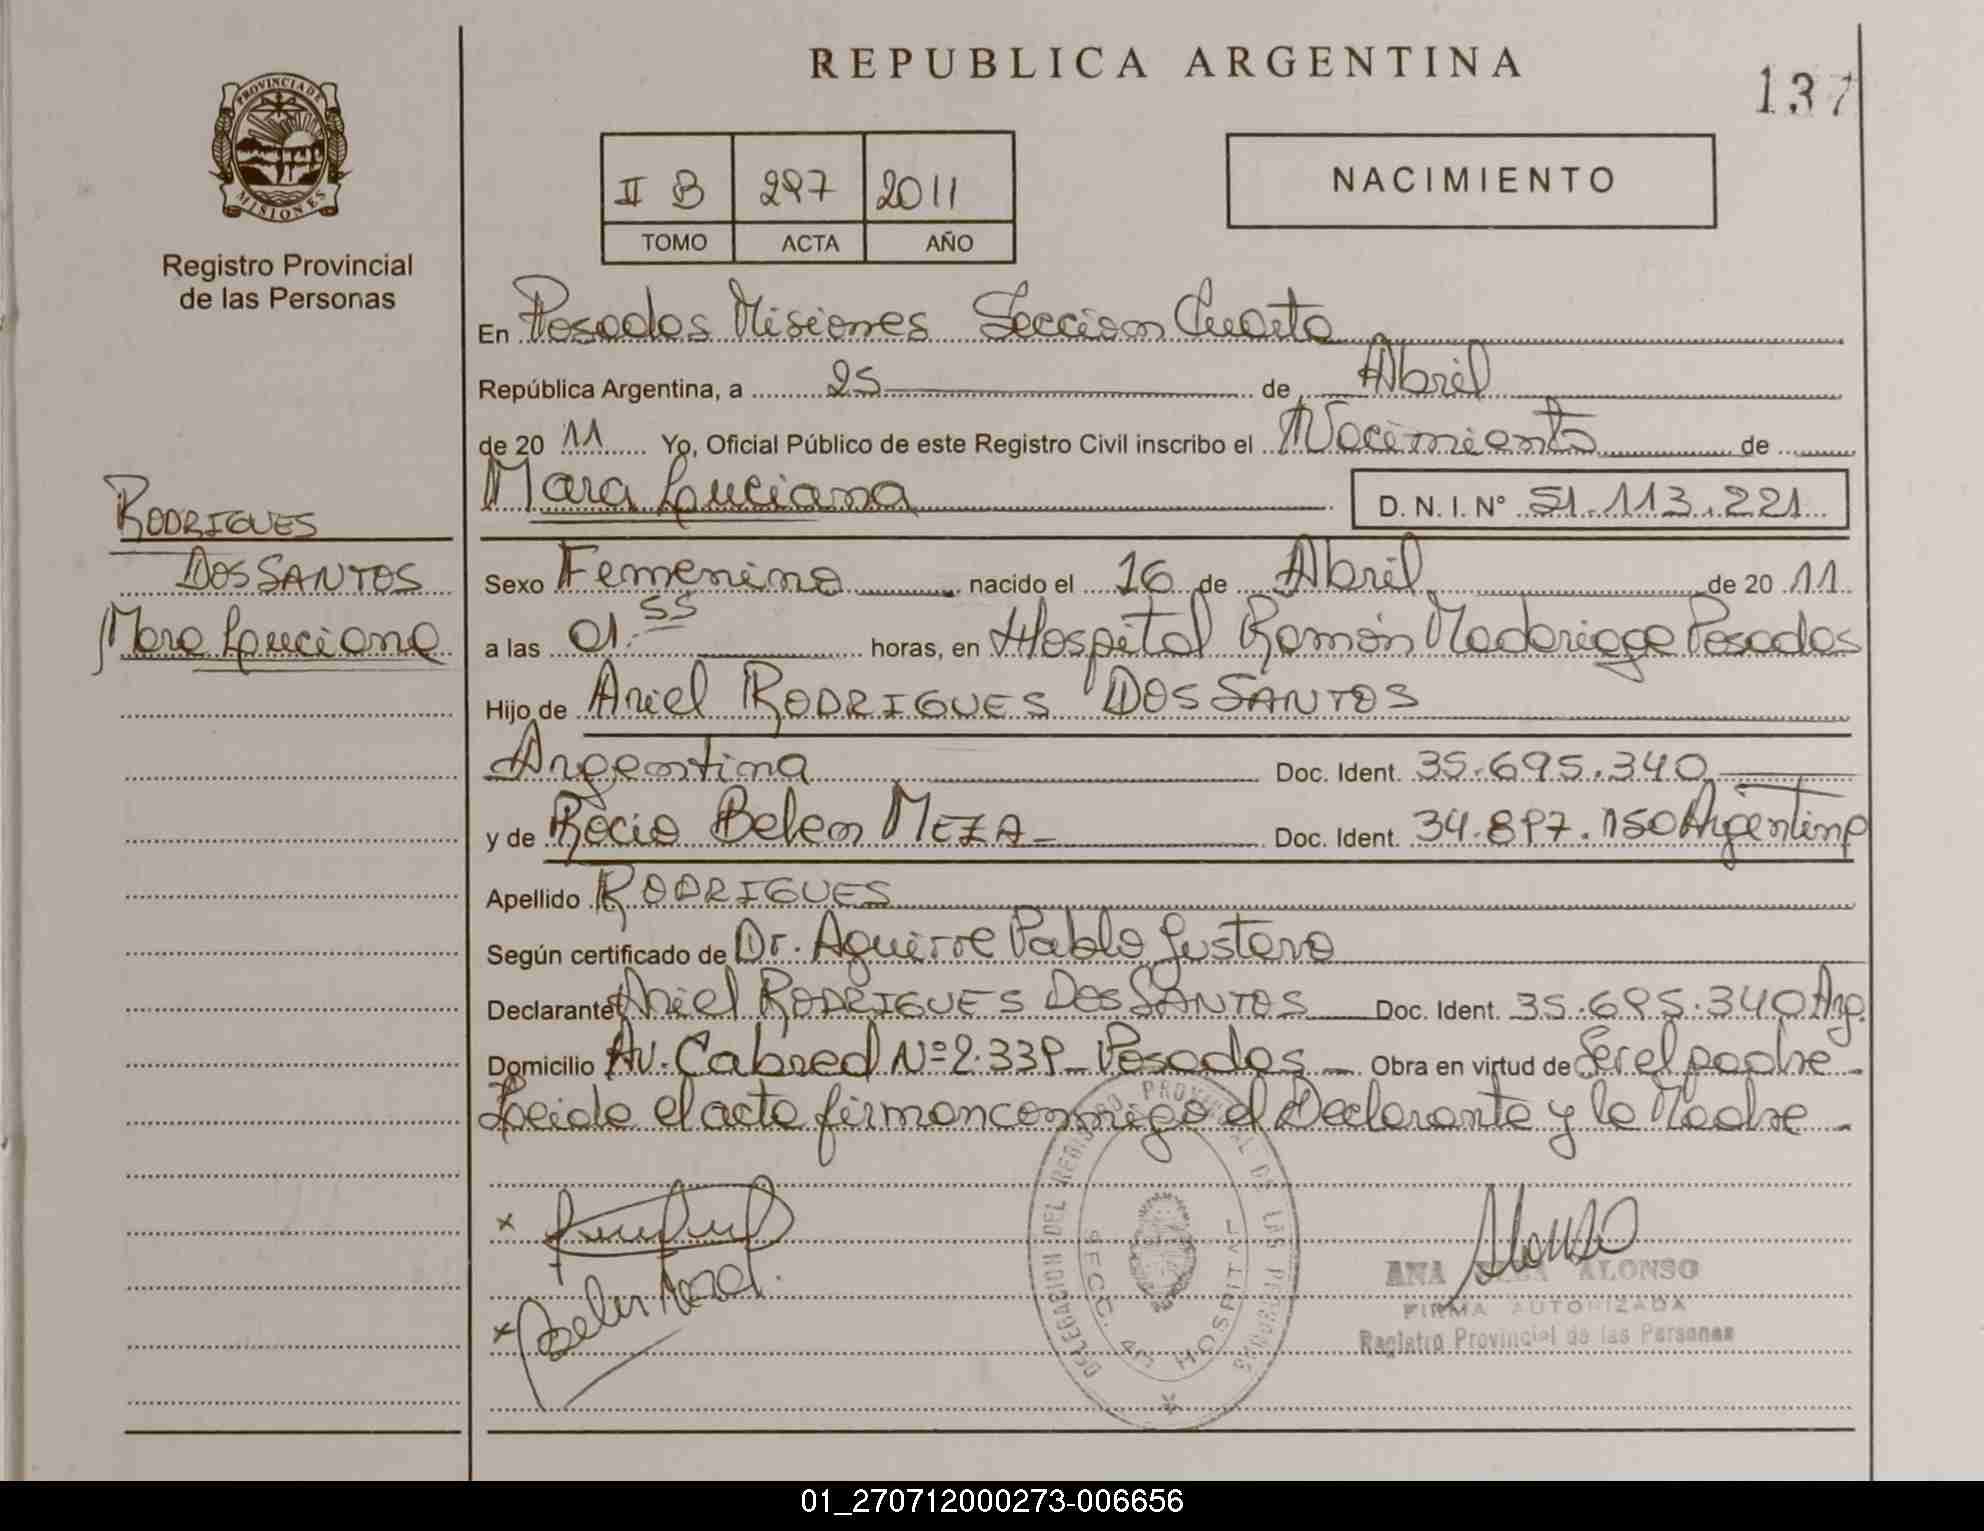 REPUBLICA ARGENTINA
137
PROVINCIA DE
MISIONES
Registro Provincial
de las Personas
II B 297 2011
TOMO ACTA AÑO
NACIMIENTO
En Posadas Misiones Seccion Cuarta
República Argentina, a 25 de Abril
de 20 11 Yo, Oficial Público de este Registro Civil inscribo el Nacimiento de
Mara Luciana D. N. I. N° 51.113.221
RODRIGUES
DOS SANTOS
Mara Luciana
Sexo Femenino nacido el 16 de Abril de 20 11
a las 01:55 horas, en Hospital Ramón Madariaga Posadas
Hijo de Ariel RODRIGUES DOS SANTOS
Argentina Doc. Ident. 35.695.340
y de Rocio Belen MEZA Doc. Ident. 34.897.150 Argentina
Apellido RODRIGUES
Según certificado de Dr. Aguirre Pablo Gustavo
Declarante Ariel RODRIGUES DOS SANTOS Doc. Ident. 35.695.340 Arg.
Domicilio Av. Cabred Nº 2.339 - Posadas - Obra en virtud de Ser el padre -
Leida el acta firman conmigo el Declarante y la Madre -
DELEGACION DEL REGISTRO PROVINCIAL DE LAS PERSONAS
SECC. 4ta HOSPITAL
x
x Belen Meza
Alonso
ANA ALONSO
FIRMA AUTORIZADA
Registro Provincial de las Personas
01_270712000273-006656